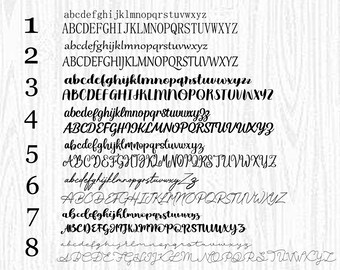 1
abcdefghijklmnopqrstuvwxyz
ABCDEFGHIJKLMNOPQRSTUVWXYZ
2
abcdefghijklmnopqrstuvwxyz
ABCDEFGHIJKLMNOPQRSTUVWXYZ
3
abcdefghijklmnopqrstuvwxyz
ABCDEFGHIJKLMNOPQRSTUVWXYZ
4
abcdefghijklmnopqrstuvwxyZz
ABCDEFGHIJKLMNOPQRSTUVWXYZ
5
abcdefghijklmnopqrstuvwxyz
ABCDEFGHIJKLMNOPQRSTUVWXYZ
6
abcdefghijklmnopqrstuvwxyZz
ABCDEFGHIJKLMNOPQRSTUVWXYZ
7
abcdefghijklmnopqrstuvwxyz
ABCDEFGHIJKLMNOPQRSTUVWXYZ
8
abcdefghijklmnopqrstuvwxyz
ABCDEFGHIJKLMNOPQRSTUVWXYZ